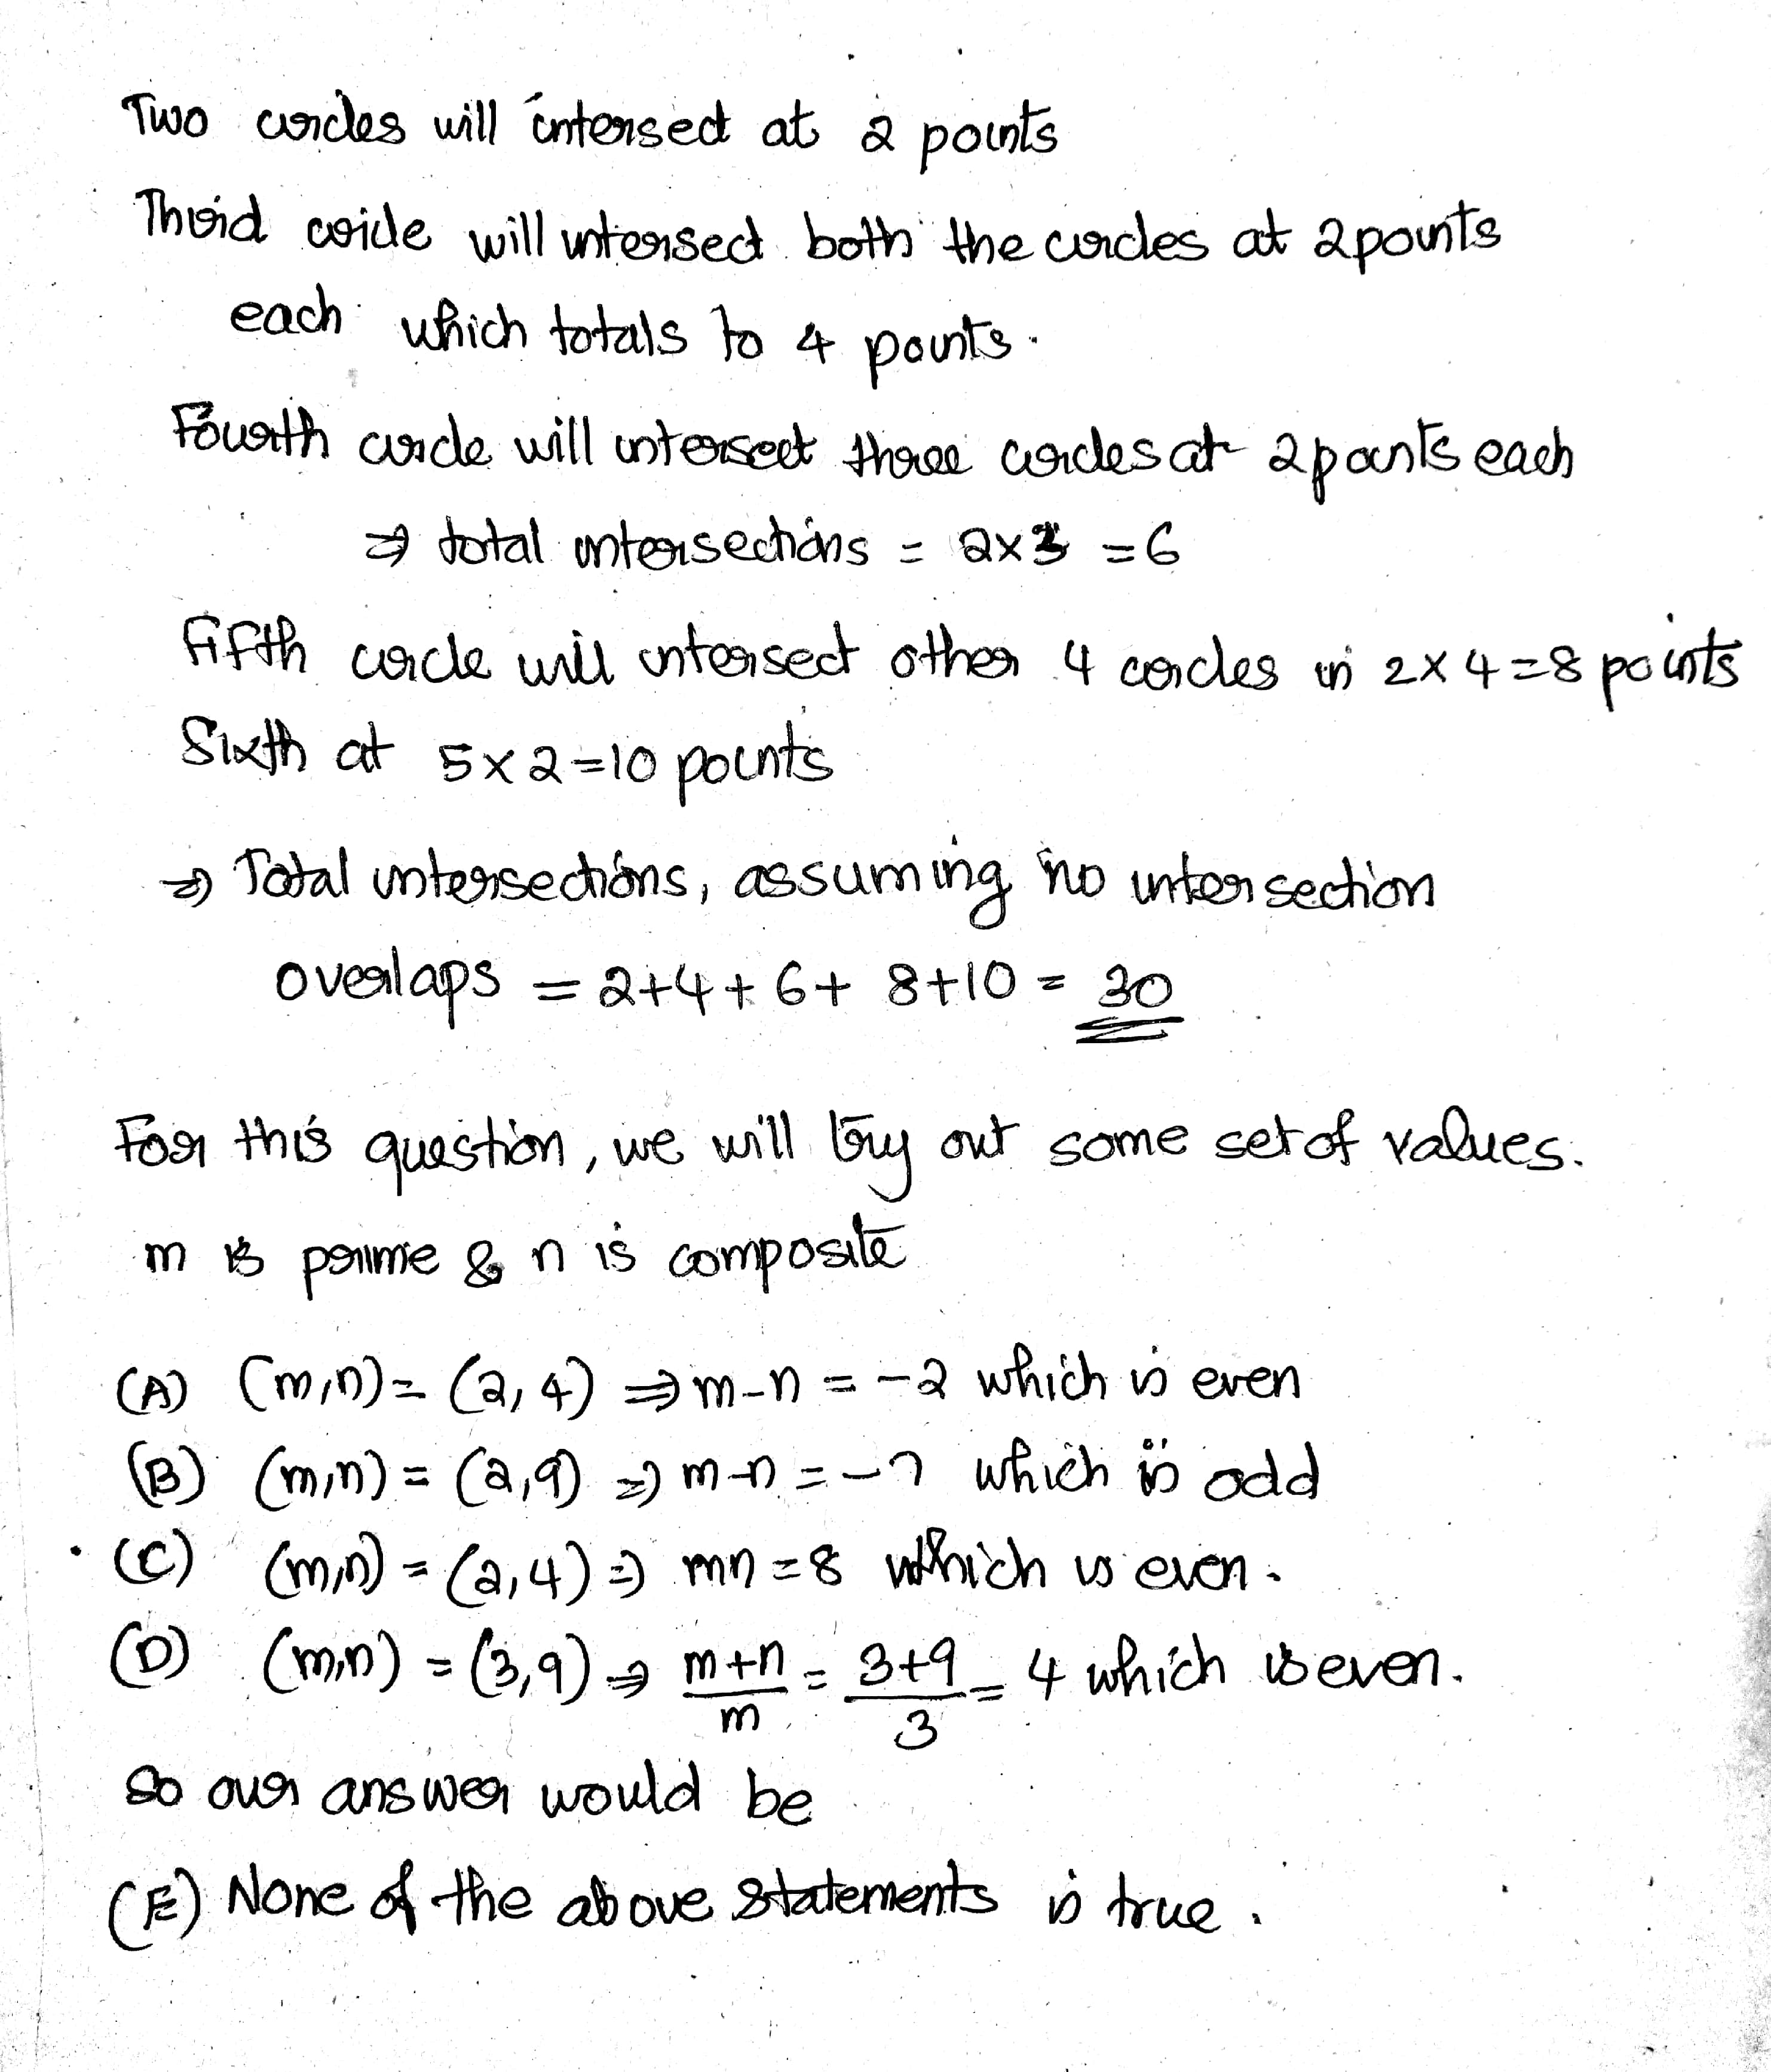 Two circles will intersect at 2 points
Third circle will intersect both the circles at 2 points
each which totals to 4 points.
Fourth circle will intersect three circles at 2 points each
⇒ total intersections = 2×3 = 6
Fifth circle will intersect other 4 circles in 2×4=8 points
Sixth at 5×2=10 points
⇒ Total intersections, assuming no intersection
overlaps = 2+4+6+8+10 = 30
For this question, we will try out some set of values.
m is prime & n is composite
(A) (m,n)= (2,4) ⇒ m-n = -2 which is even
(B) (m,n) = (2,9) ⇒ m-n = -7 which is odd
(C) (m,n) = (2,4) ⇒ mn = 8 which is even.
(D) (m,n) = (3,9) ⇒ m+n/m = 3+9/3 = 4 which is even.
So our answer would be
(E) None of the above statements is true.